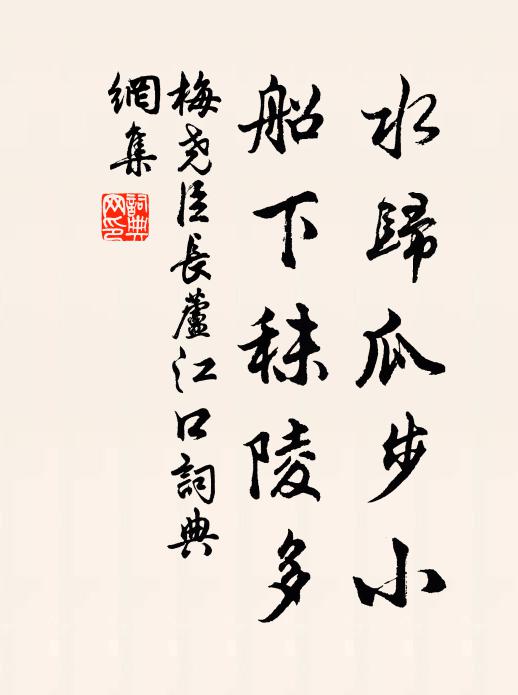 水歸瓜步小
船下秣陵多
梅堯臣長蘆江口詞典
網集
詞典
网印